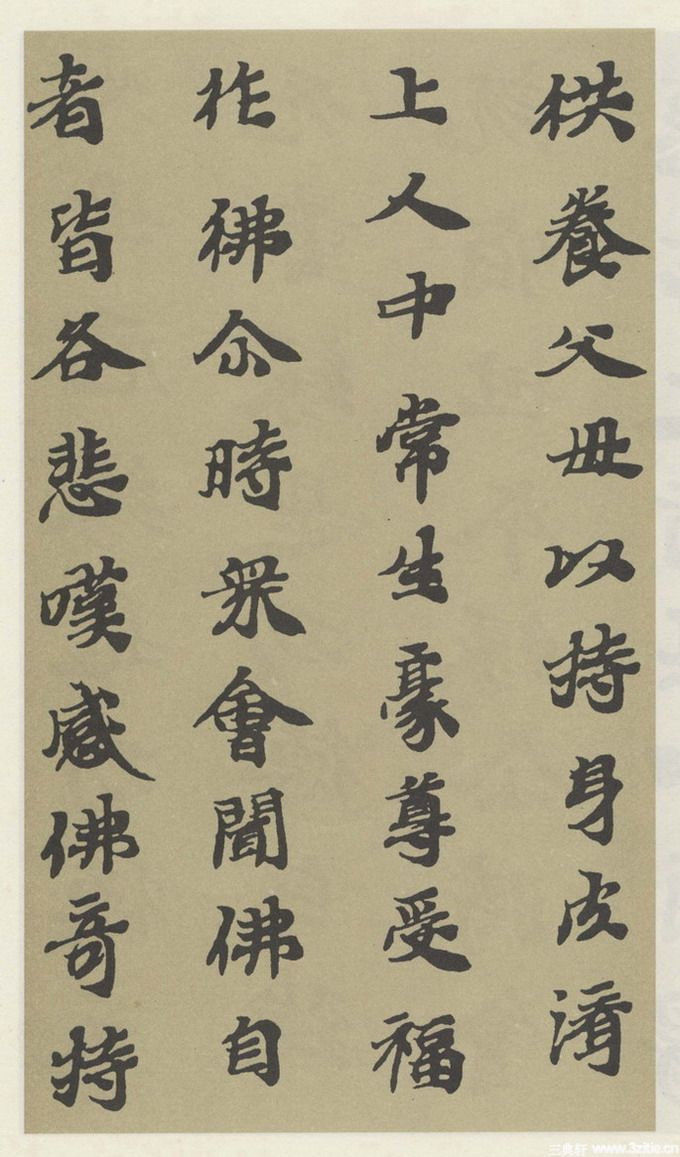 供養父母以持身皮濟
上人中常生豪尊受福
作佛尒時眾會聞佛自
者皆各悲嘆感佛奇特
三典轩 www.3zitie.cn